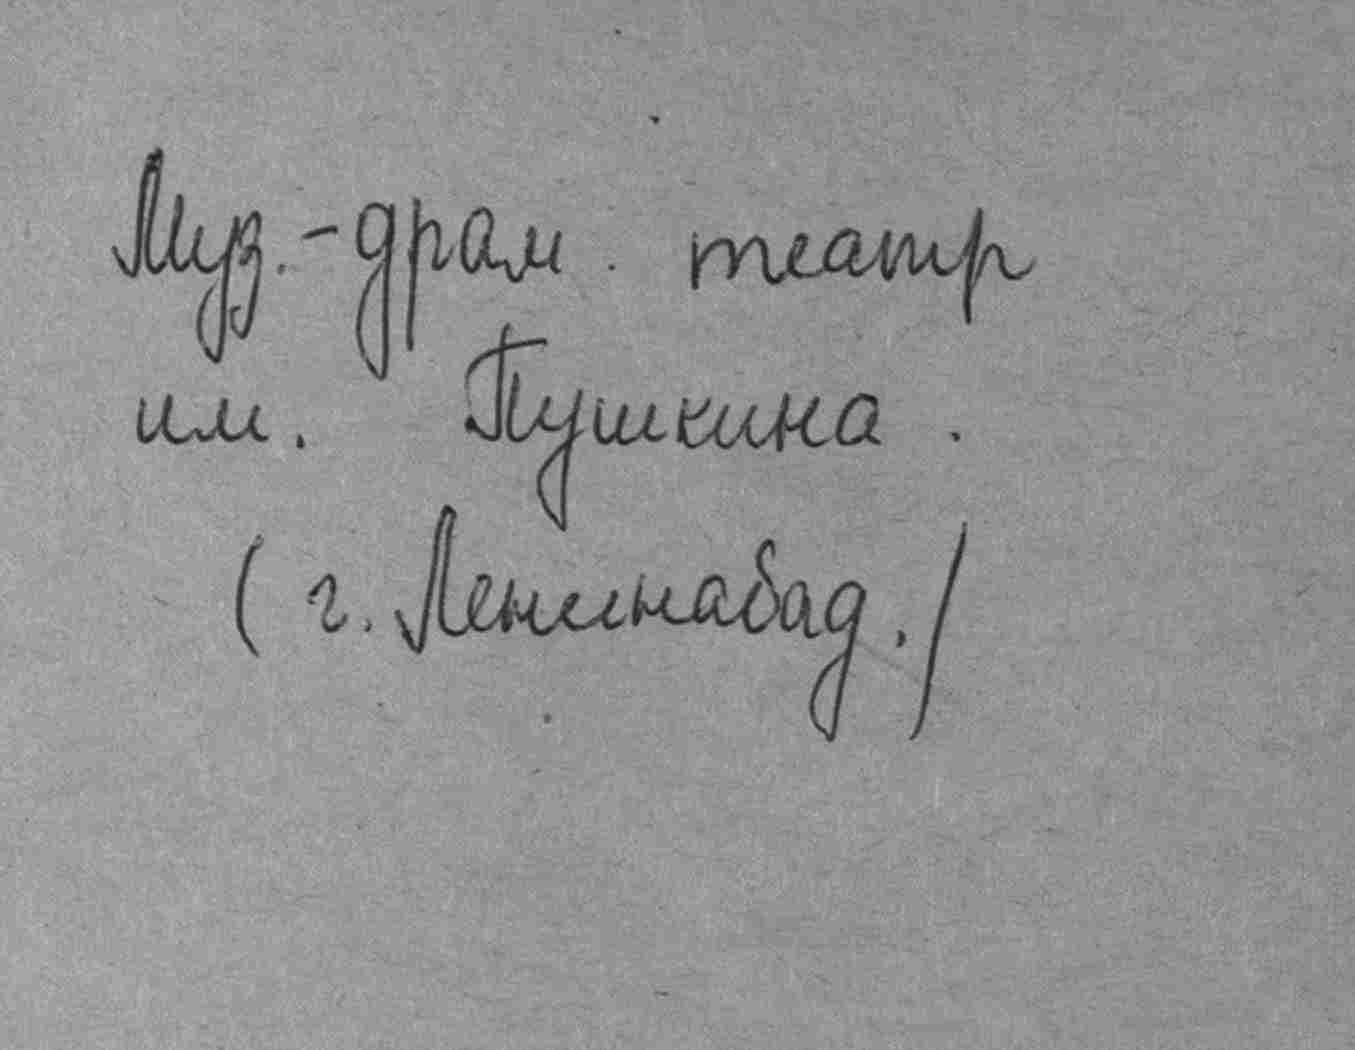 Муз.-драм. театр
им. Пушкина.
(г. Ленинабад.)